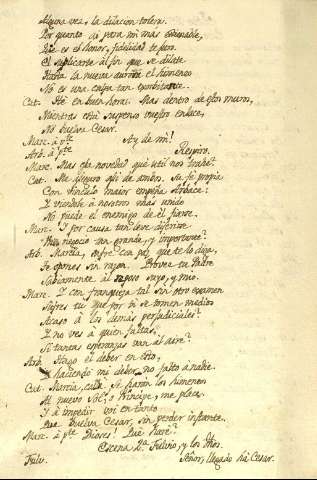 Alguna vez, la dilacion tolera.
Por quanto ai para mi mas estimable,
Que es el honor, fidelidad te juro.
El suplicarte al fin que se dilate
Hasta la nueva aurora el himeneo
No es una culpa tan exorbitante.
Cat. Sté en buen hora. Mas dentro de estos muros,
Mientras está suspenso vuestro enlace,
No buelva Cesar.
Marc. á pte. Ay de mi!
Arb. á pte. Respiro.
Marc. Mas esta novedad que util nos trahe?
Cat. Me asseguro assi de ambos. Su fe propia
Con vinculo maior empeña Arbace:
I viendole á nosotros mas unido
No puede el enemigo de él fiarse.
Marc. I por causa tan leve diferirse
Han negocio tan grande, y importante?
Arb. Marcia, sufre con paz que te lo diga,
Te opones sin razon. Provee tu Padre
Sabiamente al reposo suyo, y mio.
Marc. I con franqueza tal sin otro examen
Sufres tu que por ti se tomen medios
Acaso á los demas perjudiciales?
I no ves á quien faltas,
Si tantas esperanzas van al aire?
Arb. Hago el deber en esto,
I haciendo mi deber no falto á nadie.
Cat. Marcia, calla. Se haran los himeneos
Al nuevo Sol, o Principe, me place.
I á impedir voi en tanto
Que buelva Cesar, sin perder instante.
Marc. á pte. Dioses! Que haré?
Escena 2.ª Fulvio, y los dhos.
Fulv. Señor, llegado há Cesar.